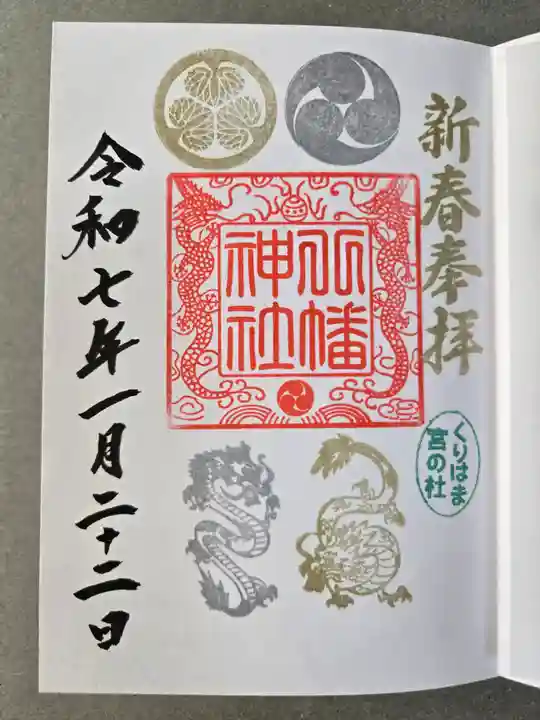 新春奉拝
八幡
神社
くりはま
宮の杜
令和七年一月二十二日